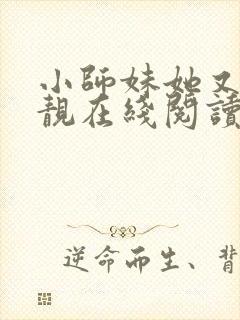 小師妹她又
靚在綫閱讀
逆命而生、背